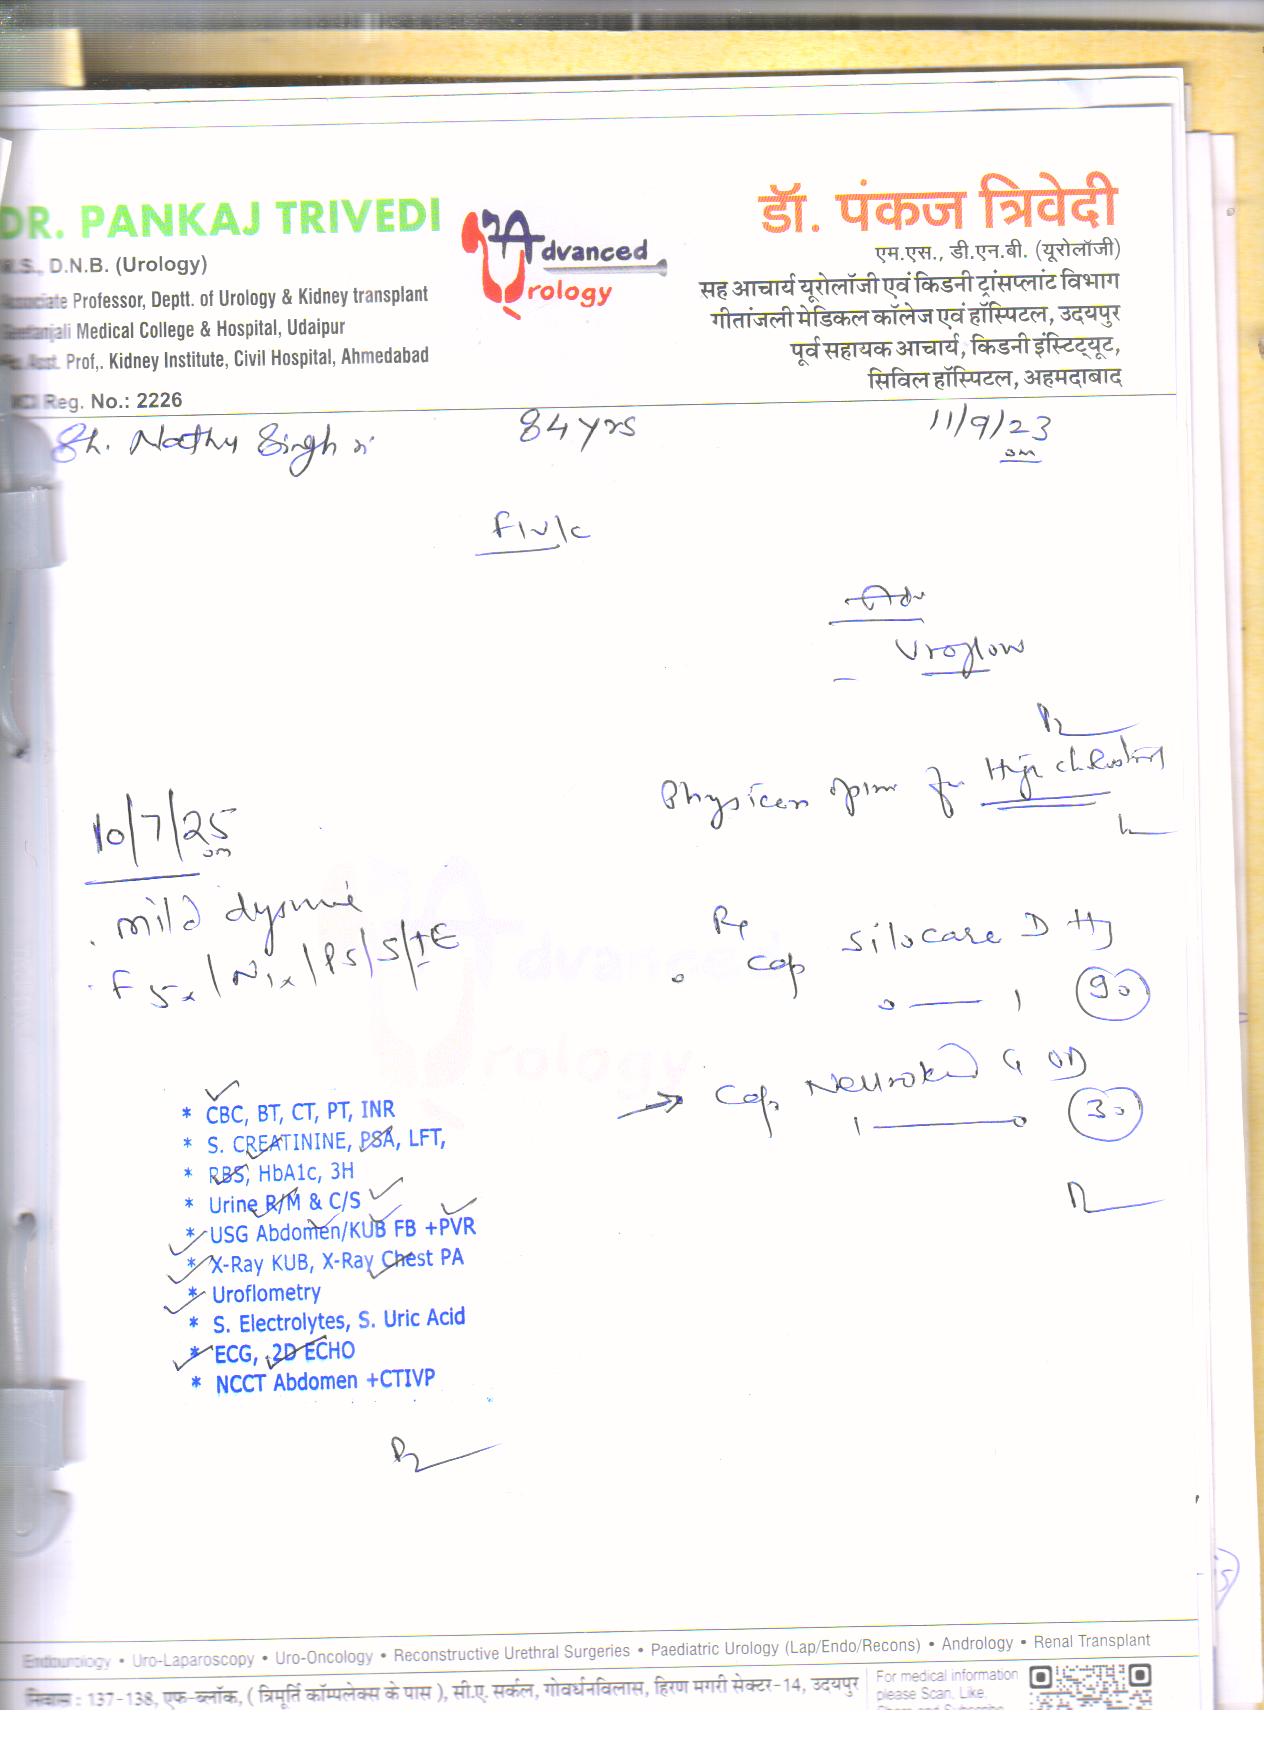 DR. PANKAJ TRIVEDI
D.N.B. (Urology)
Associate Professor, Deptt. of Urology & Kidney transplant
Geetanjali Medical College & Hospital, Udaipur
Prof,. Kidney Institute, Civil Hospital, Ahmedabad
Reg. No.: 2226
Advanced
Urology
डॉ. पंकज त्रिवेदी
एम.एस., डी.एन.बी. (यूरोलॉजी)
सह आचार्य यूरोलॉजी एवं किडनी ट्रांसप्लांट विभाग
गीतांजली मेडिकल कॉलेज एवं हॉस्पिटल, उदयपुर
पूर्व सहायक आचार्य, किडनी इंस्टिट्यूट,
सिविल हॉस्पिटल, अहमदाबाद
Sh. Nathu Singh 84 yrs 11/9/23
F/U/C
Adv
Uroflow
Physicen for
10/7/25
mild
F 5x / N 1x / PS / S /
Rp
Cap Silocare D
0 — 1 90
Cap Neurokind G OD
1 — 0 30
* CBC, BT, CT, PT, INR
* S. CREATININE, PSA, LFT,
* RBS, HbA1c, 3H
* Urine R/M & C/S
* USG Abdomen/KUB FB +PVR
* X-Ray KUB, X-Ray Chest PA
* Uroflometry
* S. Electrolytes, S. Uric Acid
* ECG, 2D ECHO
* NCCT Abdomen +CTIVP
Endourology • Uro-Laparoscopy • Uro-Oncology • Reconstructive Urethral Surgeries • Paediatric Urology (Lap/Endo/Recons) • Andrology • Renal Transplant
निवास : 137-138, एफ-ब्लॉक, ( त्रिमूर्ति कॉम्पलेक्स के पास ), सी.ए. सर्कल, गोवर्धनविलास, हिरण मगरी सेक्टर-14, उदयपुर
For medical information
please Scan, Like,